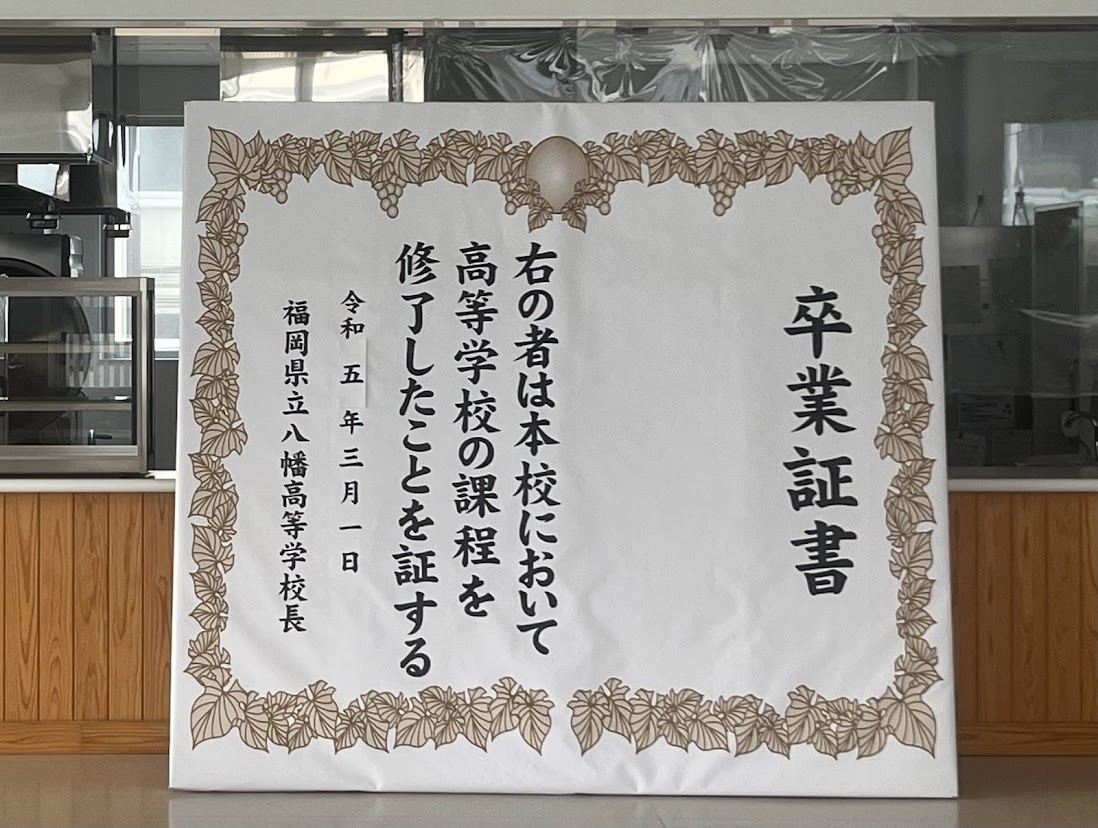 卒業証書
右の者は本校において
高等学校の課程を
修了したことを証する
令和五年三月一日
福岡県立八幡高等学校長